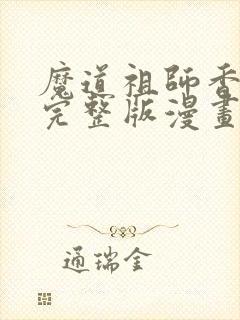 魔道祖師香
完整版漫畫
通瑞金